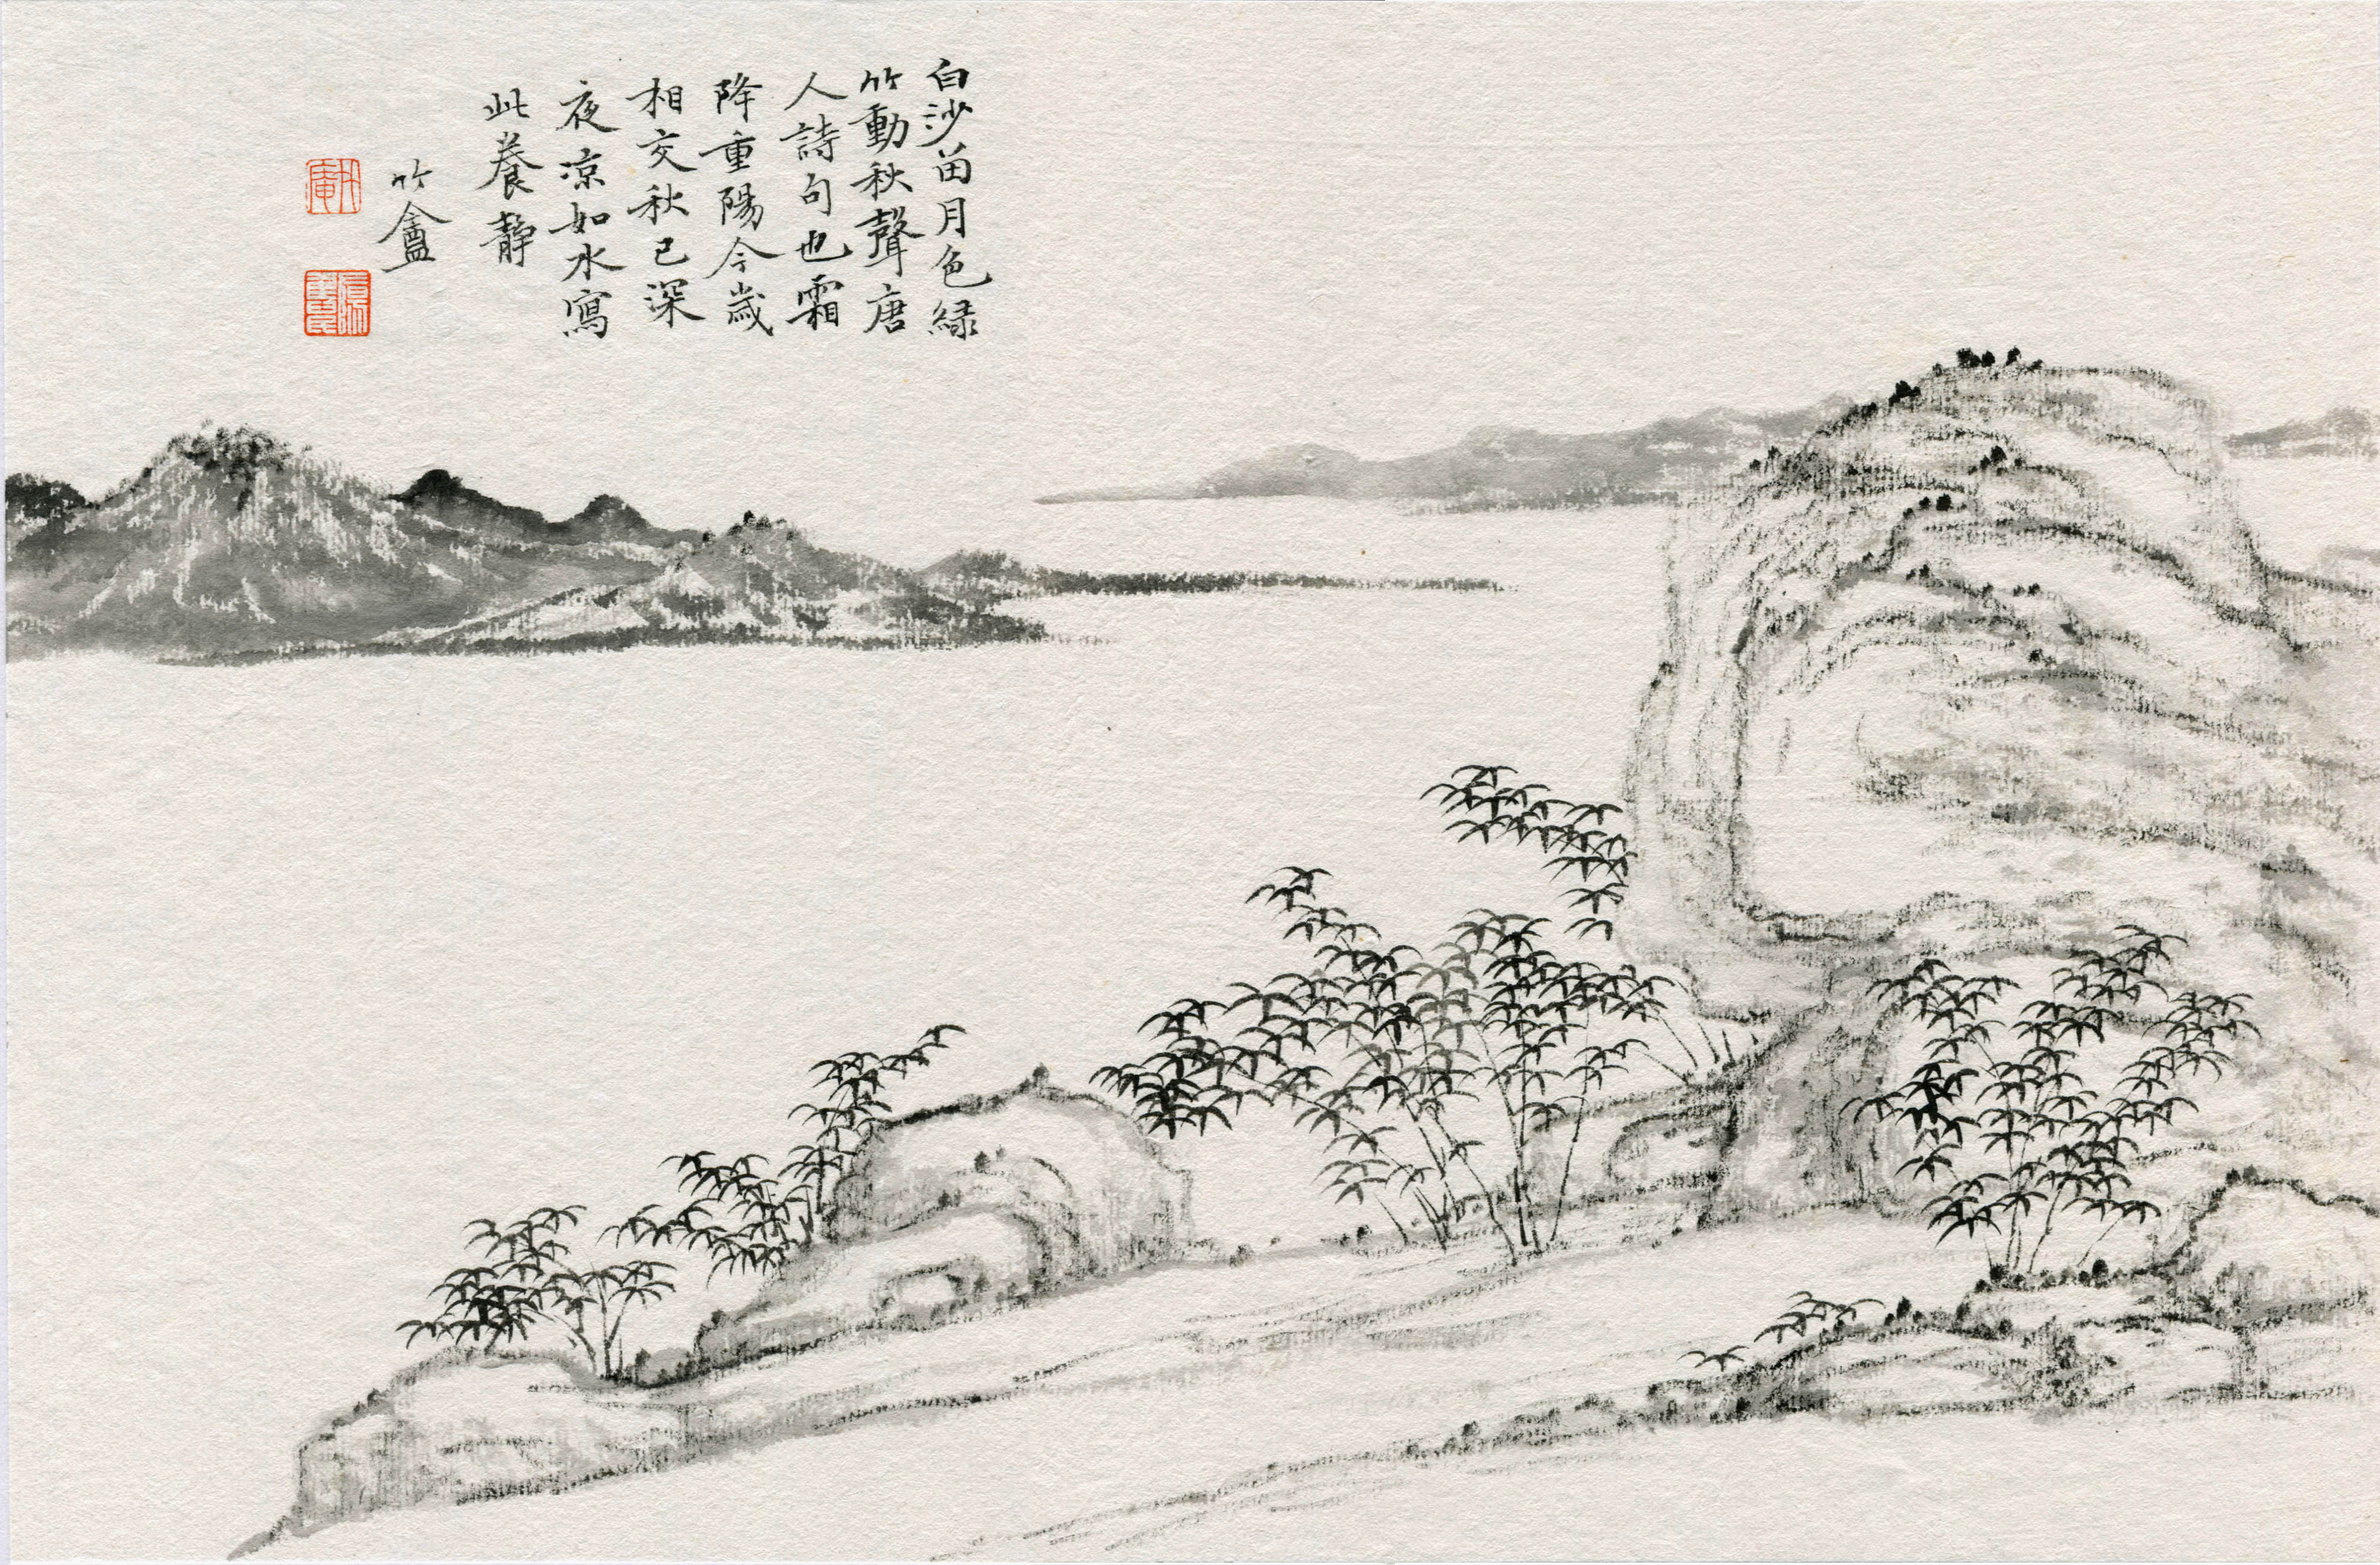 白沙畄月色綠
竹動秋聲唐
人詩句也霜
降重陽今歲
相交秋已深
夜凉如水寫
此養靜
竹盦